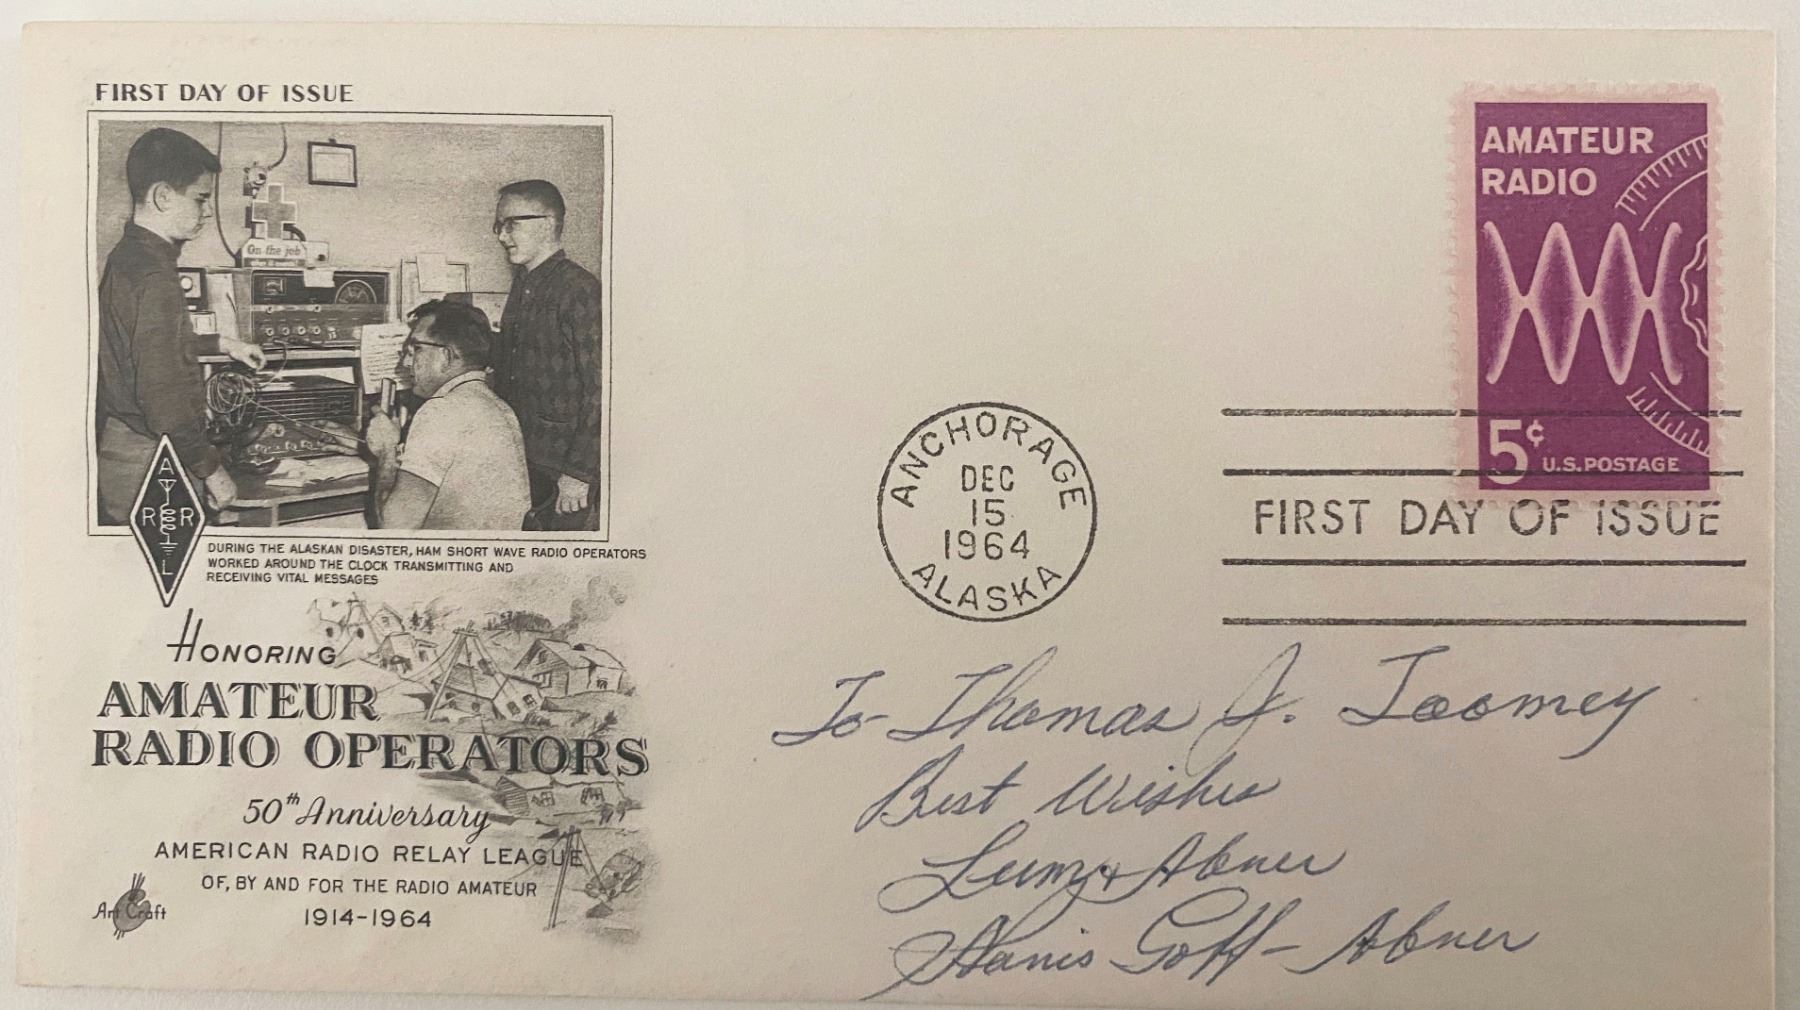 FIRST DAY OF ISSUE
On the job
A
R R
L
DURING THE ALASKAN DISASTER, HAM SHORT WAVE RADIO OPERATORS
WORKED AROUND THE CLOCK TRANSMITTING AND
RECEIVING VITAL MESSAGES
HONORING
AMATEUR
RADIO OPERATORS
50th Anniversary
AMERICAN RADIO RELAY LEAGUE
OF, BY AND FOR THE RADIO AMATEUR
1914-1964
Art Craft
AMATEUR
RADIO
5¢
U.S. POSTAGE
ANCHORAGE
DEC
15
1964
ALASKA
FIRST DAY OF ISSUE
To Thomas J. Toomey
Best Wishes
Lum & Abner
Goff - Abner